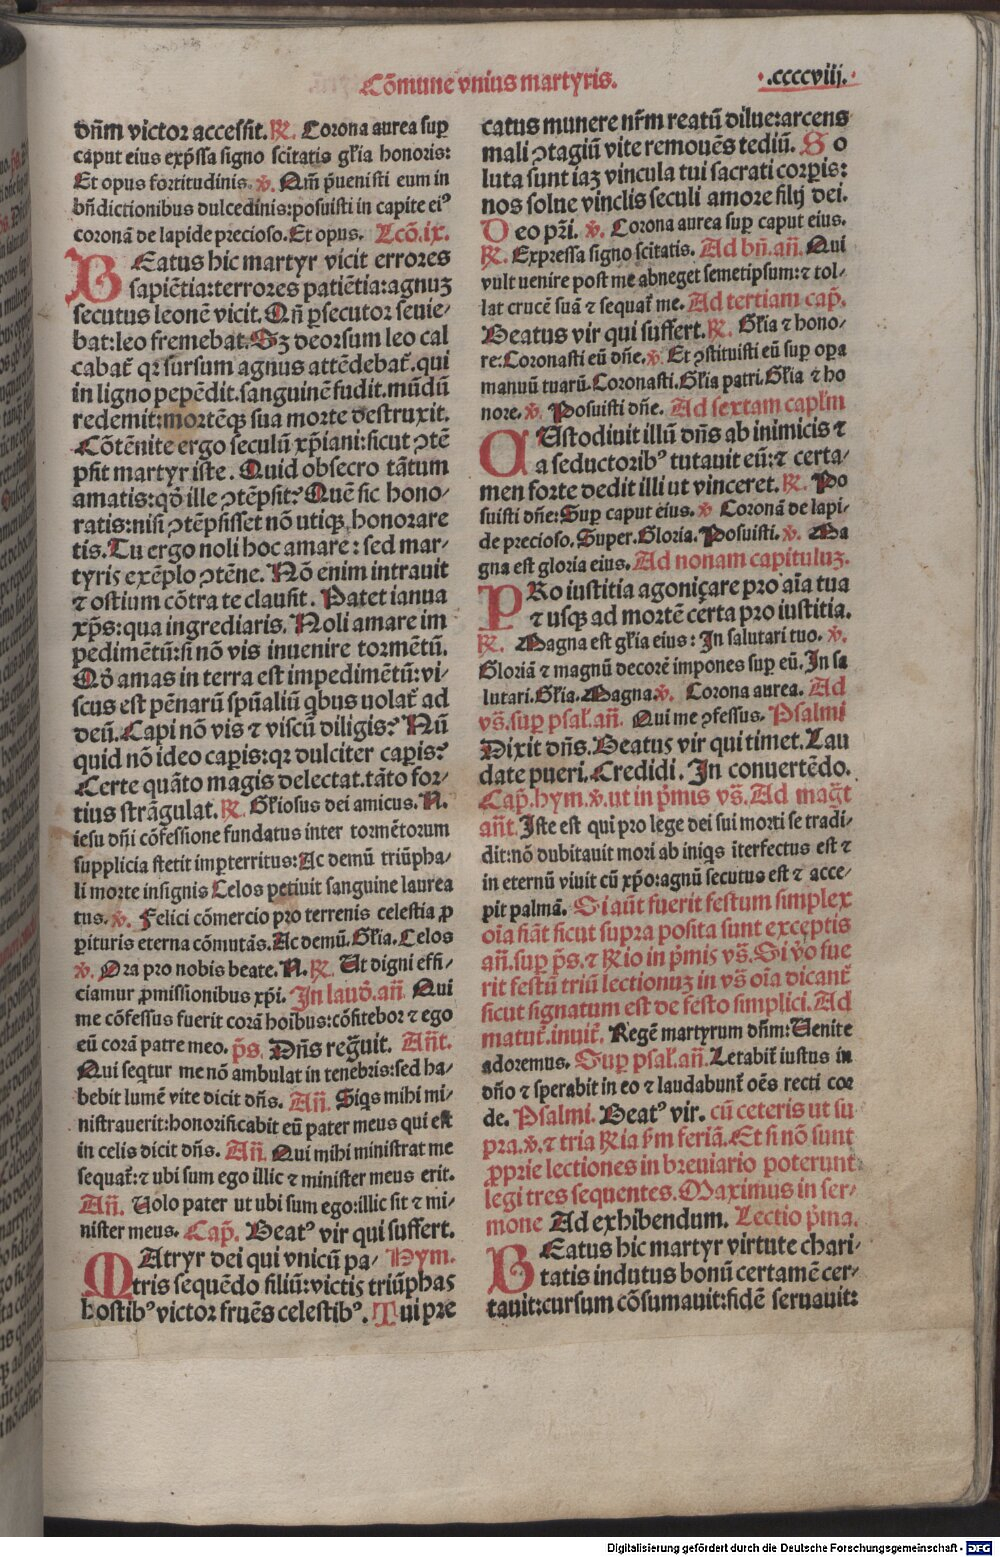 Cōmune vnius martyris.
.ccccviij.
dn̄m victor accessit. ℟. Corona aurea sup
caput eius exp̄ssa signo scītatis gl̄ia honoris:
Et opus fortitudinis. ℣. Qm̄ p̄uenisti eum in
bn̄dictionibus dulcedinis:posuisti in capite eiꝰ
coronā de lapide precioso. Et opus. Lcō.ix.
BEatus hic martyr vicit errores
sapiētia:terrores patiētia:agnuꝫ
secutus leonē vicit. Qn̄ ꝑsecutor seuie-
bat:leo fremebat. Sꝫ deorsum leo cal
cabat̄ qꝛ sursum agnus attēdebat̄. qui
in ligno pepēdit. sanguinē fudit. mūdū
redemit:mortēqꝫ sua morte destruxit.
Cōtēnite ergo seculū xp̄iani:sicut ꝯtē
psit martyr iste. Quid obsecro tātum
amatis:qd̄ ille ꝯtēpsit? Quē sic hono-
ratis:nisi ꝯtēpsisset nō utiqꝫ honorare
tis. Tu ergo noli hoc amare: sed mar-
tyris exēplo ꝯtēne. Nō enim intrauit
⁊ ostium cōtra te clausit. Patet ianua
xp̄s:qua ingrediaris. Noli amare im
pedimētū:si nō vis inuenire tormētū.
Qd̄ amas in terra est impedimētū:vi-
scus est pēnarū spūaliū qbus uolat̄ ad
deū. Capi nō vis ⁊ viscū diligis? Nū
quid nō ideo caperis:qꝛ dulciter caperis?
Certe quāto magis delectat. tāto for-
tius strāgulat. ℟. Gl̄iosus dei amicus. N.
iesu dn̄i cōfessione fundatus inter tormētorum
supplicia stetit imperterritus: Ac demū triūpha-
li morte insignis Celos petiuit sanguine laurea
tus. ℣. Felici cōmercio pro terrenis celestia ꝓ
ꝑituris eterna cōmutās. Ac demū. Gl̄ia. Celos
℣. Ora pro nobis beate. N. ℟. Ut digni effi-
ciamur ꝓmissionibus xp̄i. In laud̄. an̄. Qui
me cōfessus fuerit corā hoībus:cōfitebor ⁊ ego
eū corā patre meo. p̄s. Dn̄s regn̄uit. An̄t.
Qui seqtur me nō ambulat in tenebris:sed ha-
bebit lumē vite dicit dn̄s. An̄. Siqs mihi mi-
nistrauerit:honorificabit eū pater meus qui est
in celis dicit dn̄s. An̄. Qui mihi ministrat me
sequat̄:⁊ ubi sum ego illic ⁊ minister meus erit.
An̄. Uolo pater ut ubi sum ego:illic sit ⁊ mi-
nister meus. Cap̄. Beatꝰ vir qui suffert.
MAtryr dei qui vnicū pa- Hym.
tris sequēdo filiū:victis triūphas
hostibꝰ victor fruēs celestibꝰ. Tui pre
catus munere nr̄m reatū dilue:arcens
mali ꝯtagiū vite remouēs tediū. So
luta sunt iaꝫ vincula tui sacrati corꝑis:
nos solue vinclis seculi amore filij dei.
Deo pr̄i. ℣. Corona aurea sup caput eius.
℟. Expressa signo scītatis. Ad bn̄. an̄. Qui
vult uenire post me abneget semetipsum:⁊ tol-
lat crucē suā ⁊ sequat̄ me. Ad tertiam cap̄.
Beatus vir qui suffert. ℟. Gl̄ia ⁊ hono-
re:Coronasti eū dn̄e. ℣. Et ꝯstituisti eū sup opa
manuū tuarū. Coronasti. Gl̄ia patri. Gl̄ia ⁊ ho
nore. ℣. Posuisti dn̄e. Ad sextam capl̄m
CUstodiuit illū dn̄s ab inimicis ⁊
a seductoribꝰ tutauit eū:⁊ certa-
men forte dedit illi ut vinceret. ℟. Po
suisti dn̄e:Sup caput eius. ℣ Coronā de lapi-
de precioso. Super. Gloria. Posuisti. ℣. Ma
gna est gloria eius. Ad nonam capituluꝫ.
PRo iustitia agoniçare pro aīa tua
⁊ usqꝫ ad mortē certa pro iustitia.
℟. Magna est gl̄ia eius: In salutari tuo. ℣.
Gloriā ⁊ magnū decorē impones sup eū. In sa
lutari. Gl̄ia. Magna ℣. Corona aurea. Ad
vs̄. sup psal̄. an̄. Qui me ꝯfessus. Psalmi
Dixit dn̄s. Beatus vir qui timet. Lau
date pueri. Credidi. In conuertēdo.
Cap̄. hym. ℣. ut in p̄mis vs̄. Ad magt̄
an̄t. Iste est qui pro lege dei sui morti se tradi-
dit:nō dubitauit mori ab iniqs īterfectus est ⁊
in eternū viuit cū xp̄o:agnū secutus est ⁊ acce-
pit palmā. Si aūt fuerit festum simplex
oīa fiāt sicut supra posita sunt exceptis
an̄. sup ps̄. ⁊ ℟io in p̄mis vs̄. Si v̄o fue
rit festū triū lectionuꝫ in vs̄ oīa dicant̄
sicut signatum est de festo simplici. Ad
matut̄. inuit̄. Regē martyrum dn̄m: Uenite
adoremus. Sup psal̄. an̄. Letabit̄ iustus in
dn̄o ⁊ sperabit in eo ⁊ laudabunt̄ oēs recti cor
de. Psalmi. Beatꝰ vir. cū ceteris ut su
pra. ℣. ⁊ tria ℟ia s̄m feriā. Et si nō sunt
ꝓprie lectiones in breuiario poterunt
legi tres sequentes. Maximus in ser-
mone Ad exhibendum. Lectio p̄ma.
BEatus hic martyr virtute chari-
tatis indutus bonū certamē cer-
tauit:cursum cōsumauit:fidē seruauit:
Digitalisierung gefördert durch die Deutsche Forschungsgemeinschaft - DFG